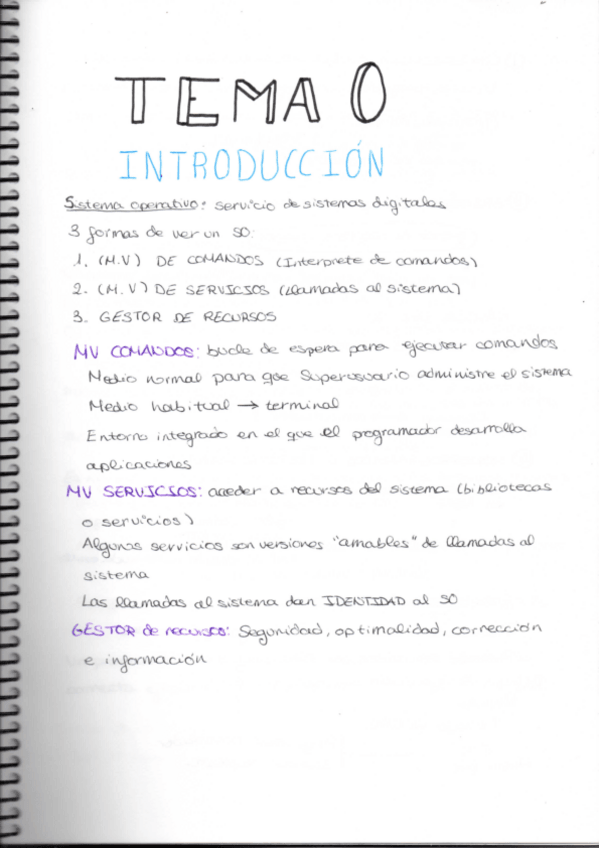 TEMA 0
INTRODUCCIÓN
Sistema operativo: servicio de sistemas digitales
3 formas de ver un SO:
1. (M.V) DE COMANDOS (Interprete de comandos)
2. (M.V) DE SERVICIOS (llamadas al sistema)
3. GESTOR DE RECURSOS
MV COMANDOS: bucle de espera para ejecutar comandos
Medio normal para que Superusuario administre el sistema
Medio habitual → terminal
Entorno integrado en el que el programador desarrolla
aplicaciones
MV SERVICIOS: acceder a recursos del sistema (bibliotecas
o servicios)
Algunos servicios son versiones "amables" de llamadas al
sistema
Las llamadas al sistema dan IDENTIDAD al SO
GESTOR de recursos: Seguridad, optimalidad, corrección
e información